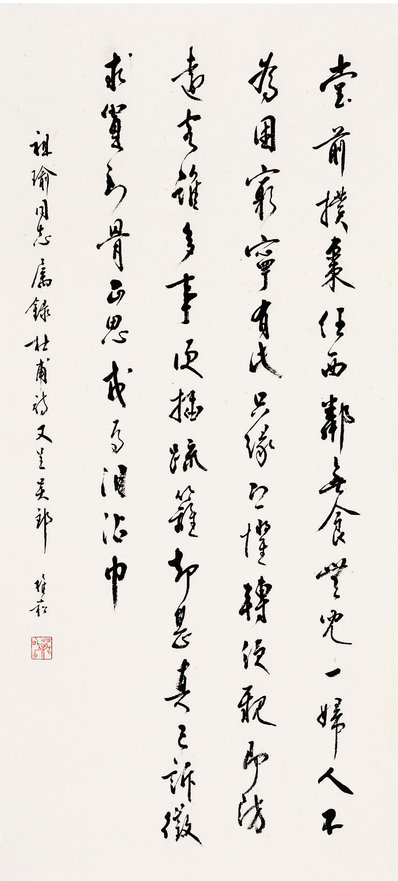 堂前撲棗任西鄰無食無兒一婦人不
為困窮寧有此只緣恐懼轉須親即防
遠客雖多事便插疏籬却甚真已訴徵
求貧到骨正思戎馬泪沾巾
祖瑜同志属錄杜甫詩又呈吳郎 維崧